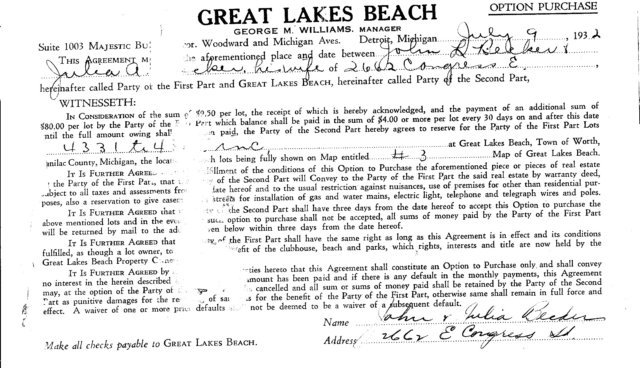 GREAT LAKES BEACH
OPTION PURCHASE
GEORGE M. WILLIAMS, MANAGER
Suite 1003 MAJESTIC BU or. Woodward and Michigan Aves. Detroit, Michigan July 9, 1932
THIS AGREEMENT M he aforementioned place and date between John &
Julia A cker, his wife of 2662 Congress E.
hereinafter called Party of the First Part and GREAT LAKES BEACH, hereinafter called Party of the Second Part,
WITNESSETH:
IN CONSIDERATION of the sum of $9.50 per lot, the receipt of which is hereby acknowledged, and the payment of an additional sum of
$80.00 per lot by the Party of the Part which balance shall be paid in the sum of $4.00 or more per lot every 30 days on and after this date
until the full amount owing shall n paid, the Party of the Second Part hereby agrees to reserve for the Party of the First Part Lots
4331 to 4 inc, at Great Lakes Beach, Town of Worth,
anilac County, Michigan, the loca h lots being fully shown on Map entitled #3 Map of Great Lakes Beach.
IT IS FURTHER AGREE illment of the conditions of this Option to Purchase the aforementioned piece or pieces of real estate
the Party of the First Part, that of the Second Part will Convey to the Party of the First Part the said real estate by warranty deed,
subject to all taxes and assessments from date hereof and to the usual restriction against nuisances, use of premises for other than residential pur-
poses, also a reservation to give ease streets for installation of gas and water mains, electric light, telephone and telegraph wires and poles.
IT IS FURTHER AGREED that of the Second Part shall have three days from the date hereof to accept this Option to Purchase the
above mentioned lots and in the eve such option to purchase shall not be accepted, all sums of money paid by the Party of the First Part
will be returned by mail to the ad en below within three days from the date hereof.
IT IS FURTHER AGREED that of the First Part shall have the same right as long as this Agreement is in effect and its conditions
fulfilled, as though a lot owner, to efit of the clubhouse, beach and parks, which rights, interests and title are now held by the
Great Lakes Beach Property
IT IS FURTHER AGREED by rties hereto that this Agreement shall constitute an Option to Purchase only and shall convey
no interest in the herein described amount has been paid and if there is any default in the monthly payments, this Agreement
may, at the option of the Party of cancelled and all sum or sums of money paid shall be retained by the Party of the Second
Part as punitive damages for the re of sa s for the benefit of the Party of the First Part, otherwise same shall remain in full force and
effect. A waiver of one or more pri defaults not be deemed to be a waiver of a subsequent default.
Name John & Julia
Make all checks payable to GREAT LAKES BEACH.
Address 2662 E Congress St.